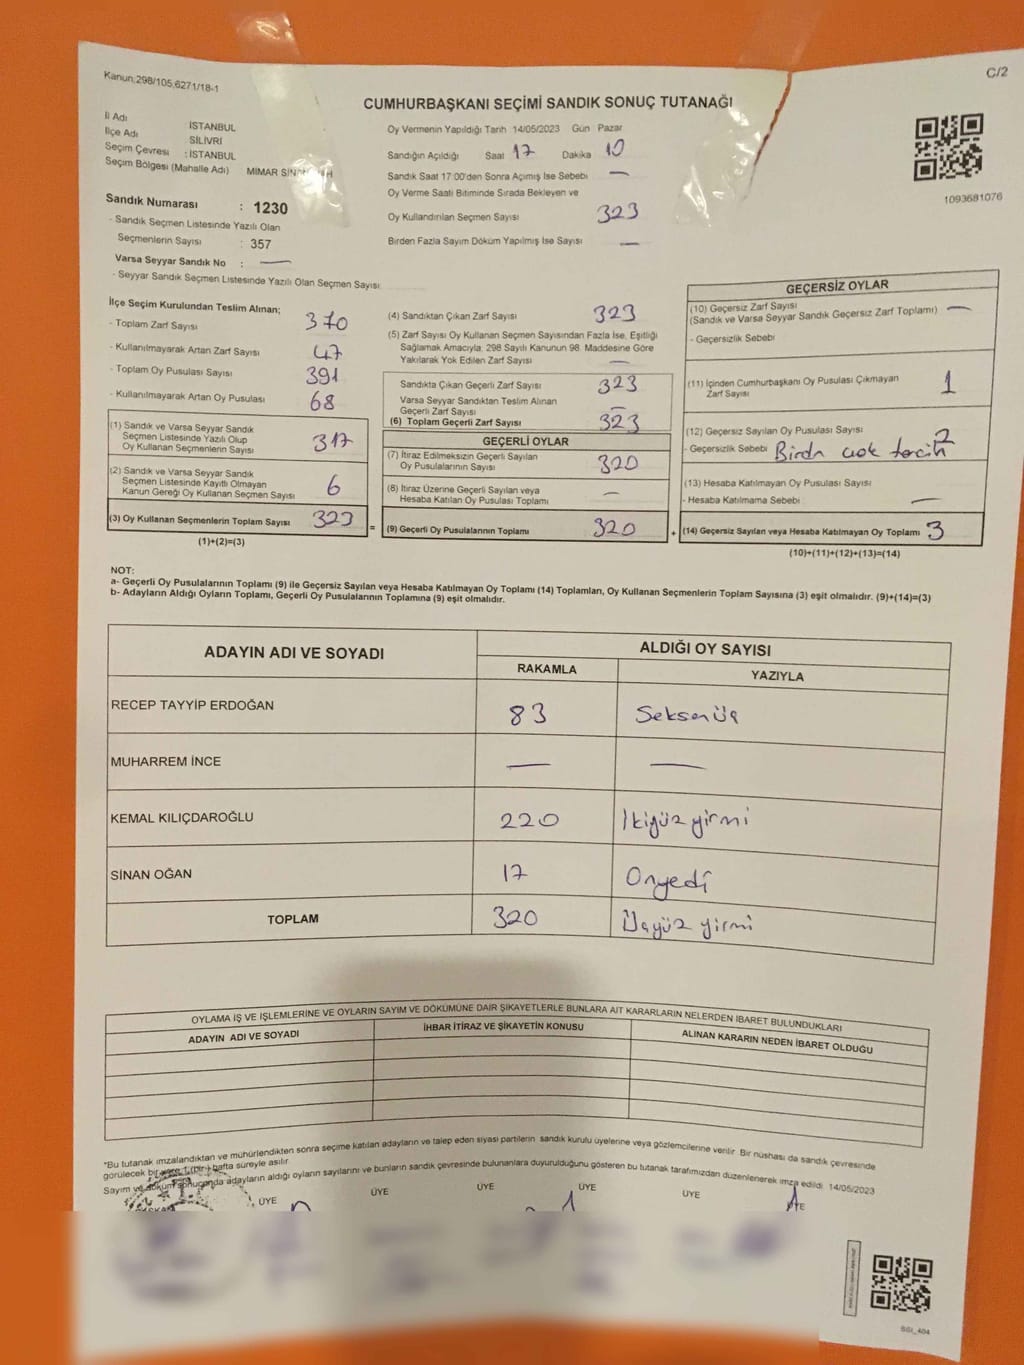 Kanun;298/105,6271/18-1
C/2
CUMHURBAŞKANI SEÇİMİ SANDIK SONUÇ TUTANAĞI
İl Adı İSTANBUL
İlçe Adı SİLİVRİ
Seçim Çevresi : İSTANBUL
Seçim Bölgesi (Mahalle Adı) MİMAR
Sandık Numarası : 1230
- Sandık Seçmen Listesinde Yazılı Olan
Seçmenlerin Sayısı : 357
Varsa Seyyar Sandık No : —
- Seyyar Sandık Seçmen Listesinde Yazılı Olan Seçmen Sayısı
Oy Vermenin Yapıldığı Tarih 14/05/2023 Gün Pazar
Sandığın Açıldığı Saat 17 Dakika 10
Sandık Saat 17:00'den Sonra Açımış İse Sebebi —
Oy Verme Saati Bitiminde Sırada Bekleyen ve
Oy Kullandırılan Seçmen Sayısı 323
Birden Fazla Sayım Döküm Yapılmış İse Sayısı —
1093681076
İlçe Seçim Kurulundan Teslim Alınan;
- Toplam Zarf Sayısı 370
- Kullanılmayarak Artan Zarf Sayısı 47
- Toplam Oy Pusulası Sayısı 391
- Kullanılmayarak Artan Oy Pusulası 68
(1) Sandık ve Varsa Seyyar Sandık
Seçmen Listesinde Yazılı Olup
Oy Kullanan Seçmenlerin Sayısı 317
(2) Sandık ve Varsa Seyyar Sandık
Seçmen Listesinde Kayıtlı Olmayan
Kanun Gereği Oy Kullanan Seçmen Sayısı 6
(3) Oy Kullanan Seçmenlerin Toplam Sayısı 323 =
(1)+(2)=(3)
(4) Sandıktan Çıkan Zarf Sayısı 323
(5) Zarf Sayısı Oy Kullanan Seçmen Sayısından Fazla İse, Eşitliği
Sağlamak Amacıyla, 298 Sayılı Kanunun 98. Maddesine Göre
Yakılarak Yok Edilen Zarf Sayısı —
Sandıkta Çıkan Geçerli Zarf Sayısı 323
Varsa Seyyar Sandıktan Teslim Alınan
Geçerli Zarf Sayısı —
(6) Toplam Geçerli Zarf Sayısı 323
GEÇERLİ OYLAR
(7) İtiraz Edilmeksizin Geçerli Sayılan
Oy Pusulalarının Sayısı 320
(8) İtiraz Üzerine Geçerli Sayılan veya
Hesaba Katılan Oy Pusulası Toplamı —
(9) Geçerli Oy Pusulalarının Toplamı 320 +
GEÇERSİZ OYLAR
(10) Geçersiz Zarf Sayısı
(Sandık ve Varsa Seyyar Sandık Geçersiz Zarf Toplamı) —
- Geçersizlik Sebebi
(11) İçinden Cumhurbaşkanı Oy Pusulası Çıkmayan
Zarf Sayısı 1
(12) Geçersiz Sayılan Oy Pusulası Sayısı 2
- Geçersizlik Sebebi Birdn çok tercih
(13) Hesaba Katılmayan Oy Pusulası Sayısı
- Hesaba Katılmama Sebebi —
(14) Geçersiz Sayılan veya Hesaba Katılmayan Oy Toplamı 3
(10)+(11)+(12)+(13)=(14)
NOT:
a- Geçerli Oy Pusulalarının Toplamı (9) ile Geçersiz Sayılan veya Hesaba Katılmayan Oy Toplamı (14) Toplamları, Oy Kullanan Seçmenlerin Toplam Sayısına (3) eşit olmalıdır. (9)+(14)=(3)
b- Adayların Aldığı Oyların Toplamı, Geçerli Oy Pusulalarının Toplamına (9) eşit olmalıdır.
ADAYIN ADI VE SOYADI
ALDIĞI OY SAYISI
RAKAMLA YAZIYLA
RECEP TAYYİP ERDOĞAN 83 Seksenüç
MUHARREM İNCE — —
KEMAL KILIÇDAROĞLU 220 İkiyüz yirmi
SİNAN OĞAN 17 Onyedi
TOPLAM 320 Üçyüz yirmi
OYLAMA İŞ VE İŞLEMLERİNE VE OYLARIN SAYIM VE DÖKÜMÜNE DAİR ŞİKAYETLERLE BUNLARA AİT KARARLARIN NELERDEN İBARET BULUNDUKLARI
ADAYIN ADI VE SOYADI İHBAR İTİRAZ VE ŞİKAYETİN KONUSU ALINAN KARARIN NEDEN İBARET OLDUĞU
*Bu tutanak imzalandıktan ve mühürlendikten sonra seçime katılan adayların ve talep eden siyasi partilerin sandık kurulu üyelerine veya gözlemcilerine verilir. Bir nüshası da sandık çevresinde
görülecek bir yere 1 (bir) hafta süreyle asılır.
Sayım ve döküm sonucunda adayların aldığı oyların sayılarını ve bunların sandık çevresinde bulunanlara duyurulduğunu gösteren bu tutanak tarafımızdan düzenlenerek imza edildi. 14/05/2023
ÜYE ÜYE ÜYE ÜYE ÜYE